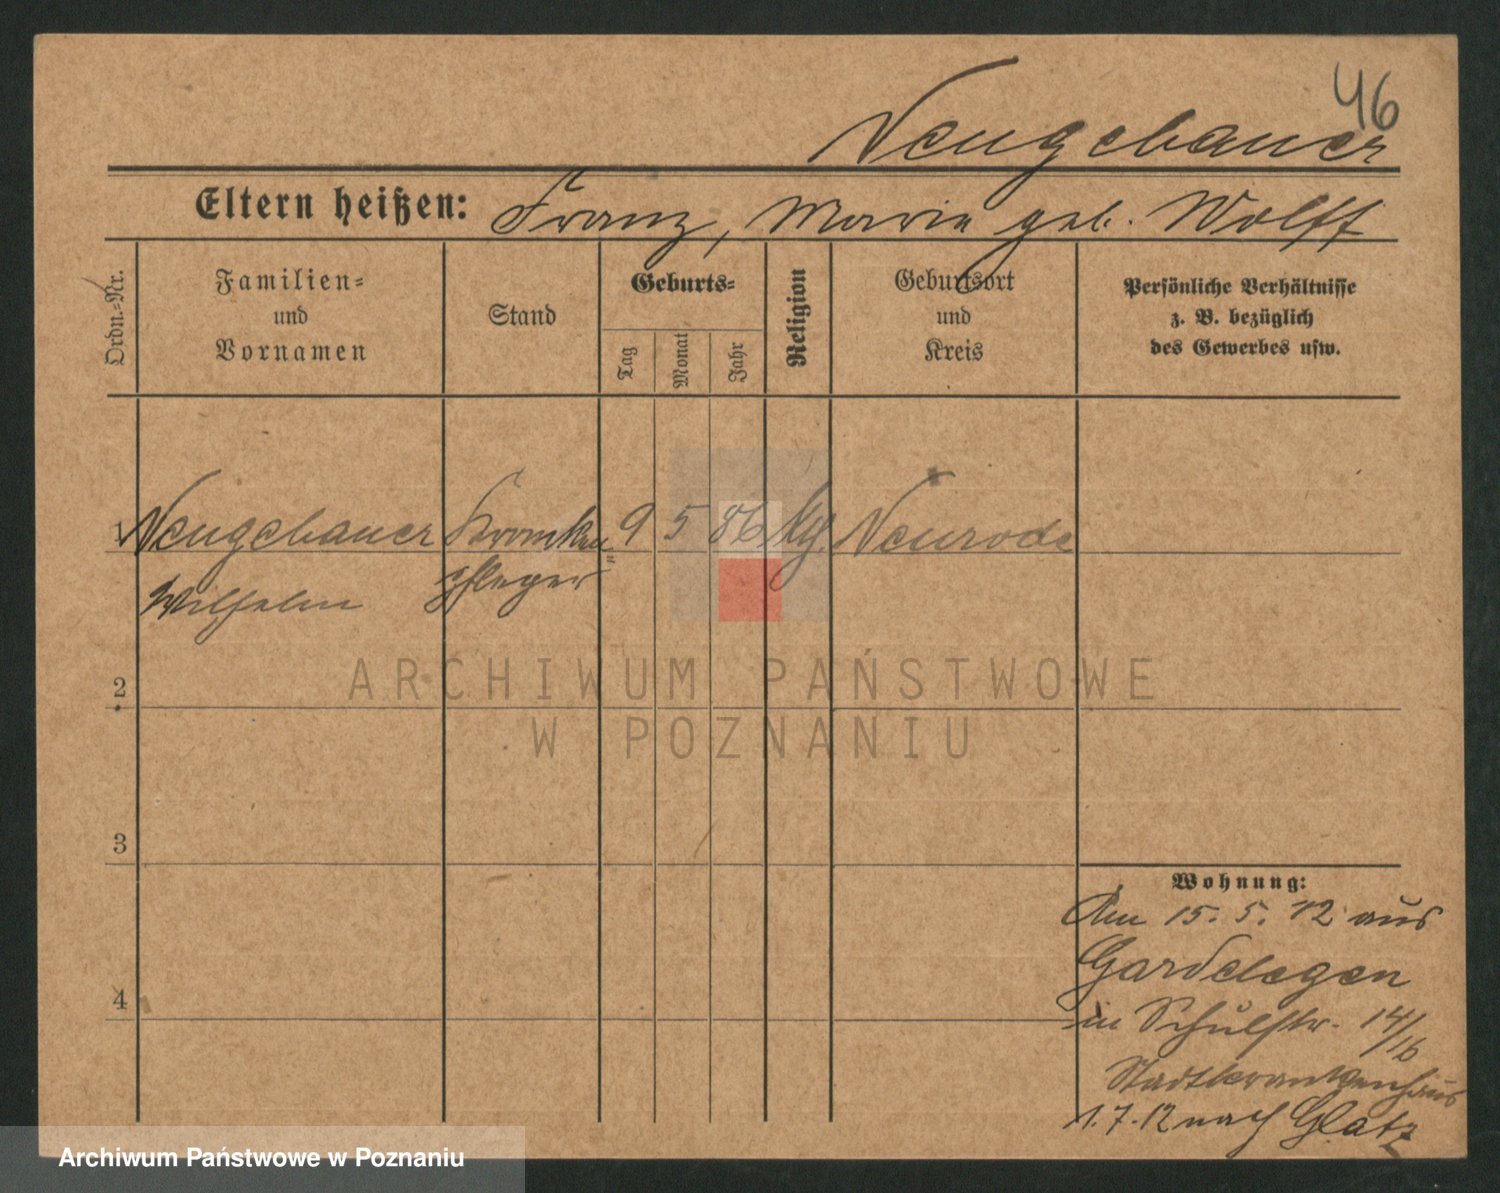 46
Neugebauer
Eltern heißen: Franz, Marie geb. Wolff
Ordn.-Nr.
Familien-
und
Vornamen
Stand
Geburts-
Tag
Monat
Jahr
Religion
Geburtsort
und
Kreis
Persönliche Verhältnisse
z. B. bezüglich
des Gewerbes usw.
1 Neugebauer Kranken 9 5 86 kg. Neurode
Wilhelm pfleger
2
3
4
Wohnung:
Am 15. 5. 12 aus
Gardelegen
in Schulstr. 14/16
Stadtkrankenhaus
1. 7. 12 nach Glatz
ARCHIWUM PAŃSTWOWE
W POZNANIU
Archiwum Państwowe w Poznaniu